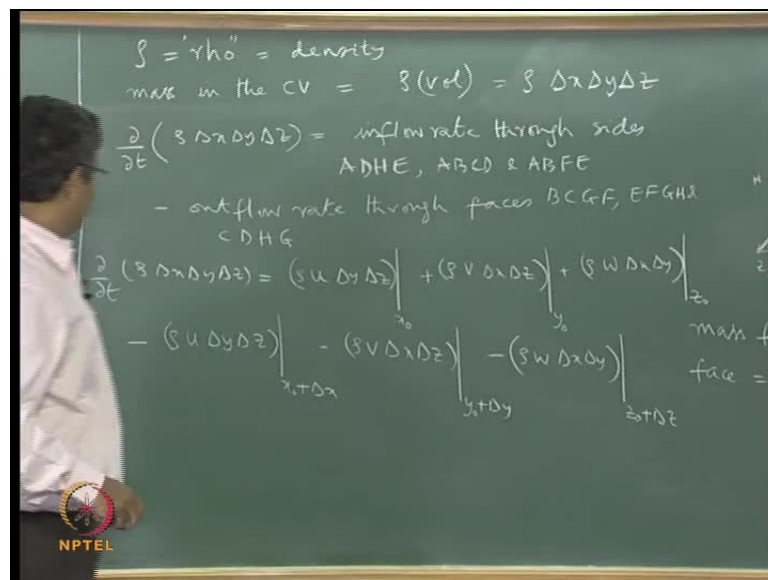 ρ = "rho" = density
mass in the CV = ρ(vol) = ρ Δx Δy Δz
∂/∂t (ρ Δx Δy Δz) = inflow rate through sides
ADHE, ABCD & ABFE
- outflow rate through faces BCGF, EFGH &
CDHG
∂/∂t (ρ Δx Δy Δz) = (ρ u Δy Δz)|x₀ + (ρ v Δx Δz)|y₀ + (ρ w Δx Δy)|z₀
- (ρ u Δy Δz)|x₀+Δx - (ρ v Δx Δz)|y₀+Δy - (ρ w Δx Δy)|z₀+Δz
H
z
mass f
face =
NPTEL